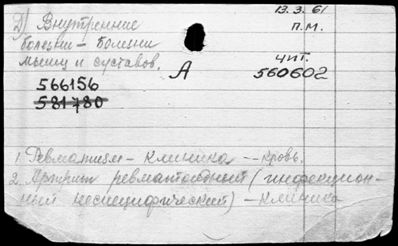 13.3.61
2) Внутренние
п.м.
болезни – болезни
мышц и суставов.
чит.
А
560602
566156
581780
1. Ревматизм – клиника -- кровь.
2. Артрит ревматоидный (инфекцион-
ный неспецифический) – клиника